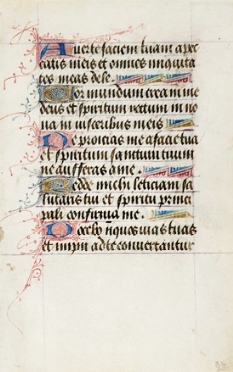 Auerte faciem tuam a pec
catis meis et omnes iniquita
tes meas dele.
Cor mundum crea in me
deus et spiritum rectum in no
ua in visceribus meis
Ne proicias me a facie tua
et spiritum sanctum tuum
ne aufferas a me.
Redde michi leticiam sa
lutaris tui et spiritu princi
pali confirma me.
Docebo iniquos vias tuas
et impii ad te conuertantur